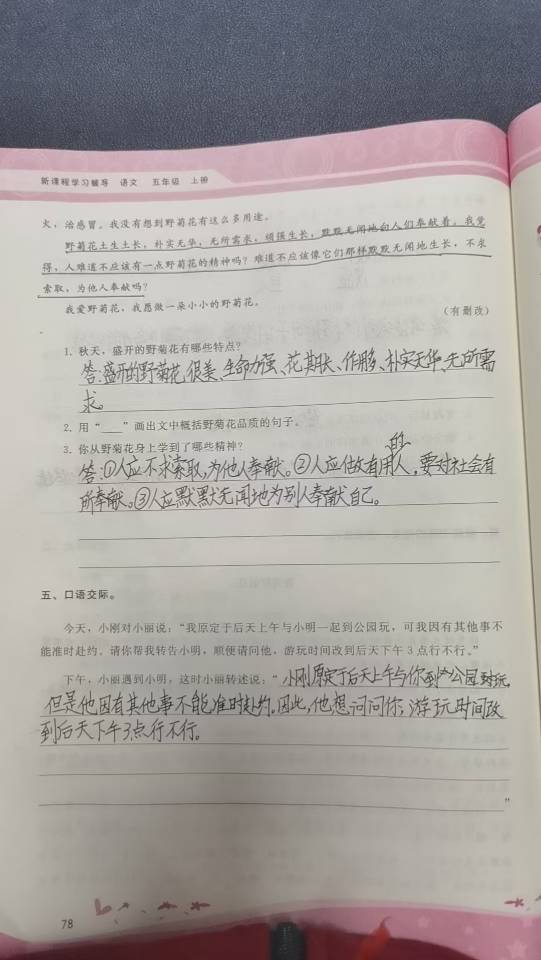 新课程学习辅导 语文 五年级 上册
火，治感冒。我没有想到野菊花有这么多用途。
野菊花土生土长，朴实无华，无所需求，顽强生长，默默无闻地向人们奉献着。我觉
得，人难道不应该有一点野菊花的精神吗？难道不应该像它们那样默默无闻地生长，不求
索取，为他人奉献吗？
我爱野菊花，我愿做一朵小小的野菊花。
（有删改）
1. 秋天，盛开的野菊花有哪些特点？
答:盛开的野菊花很美、生命力强、花期长、作用多、朴实无华、无所需
求。
2. 用“___”画出文中概括野菊花品质的句子。
3. 你从野菊花身上学到了哪些精神？
答:①人应不求索取,为他人奉献。②人应做有用的人,要对社会有
所奉献。③人应默默无闻地为别人奉献自己。
五、口语交际。
今天，小刚对小丽说：“我原定于后天上午与小明一起到公园玩，可我因有其他事不
能准时赴约。请你帮我转告小明，顺便请问他，游玩时间改到后天下午3点行不行。”
下午，小丽遇到小明，这时小丽转述说：“小刚原定于后天上午与你到公园玩,
但是他因有其他事不能准时赴约。因此,他想问问你,游玩时间改
到后天下午3点行不行。
”
78